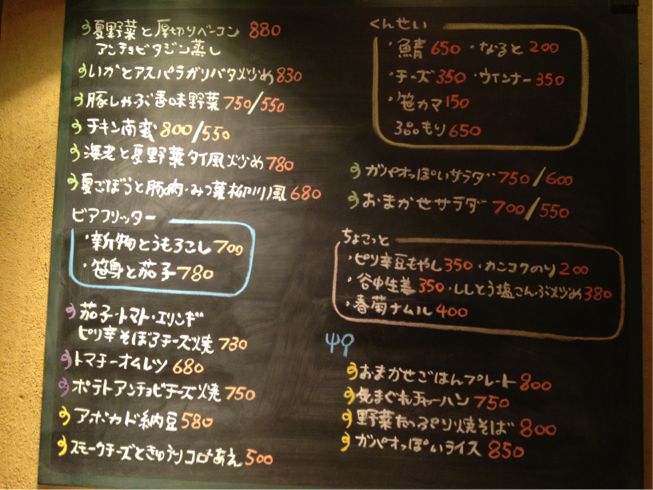 夏野菜と厚切りベーコン 880
アンチョビタジン蒸し
いかとアスパラガリバタ炒め 830
豚しゃぶ香味野菜 750/550
チキン南蛮 800/550
海老と夏野菜タイ風炒め 780
夏ごぼうと豚肉・みつ葉柳川風 680
ビアフリッター
・新物とうもろこし 700
・笹身と茄子 780
茄子・トマト・エリンギ
ピリ辛そぼろチーズ焼 730
トマチーオムレツ 680
ポテトアンチョビチーズ焼 750
アボカド納豆 580
スモークチーズときゅうりコロコロあえ 500
くんせい
・鯖 650 ・なると 200
・チーズ 350 ・ウインナー 350
・笹カマ 150
3品もり 650
ガパオっぽいサラダ 750/600
おまかせサラダ 700/550
ちょこっと
・ピリ辛豆もやし 350 ・カンコクのり 200
・谷中生姜 350 ・ししとう塩こんぶ炒め 380
・春菊ナムル 400
おまかせごはんプレート 800
気まぐれチャーハン 750
野菜たっぷり焼そば 800
ガパオっぽいライス 850